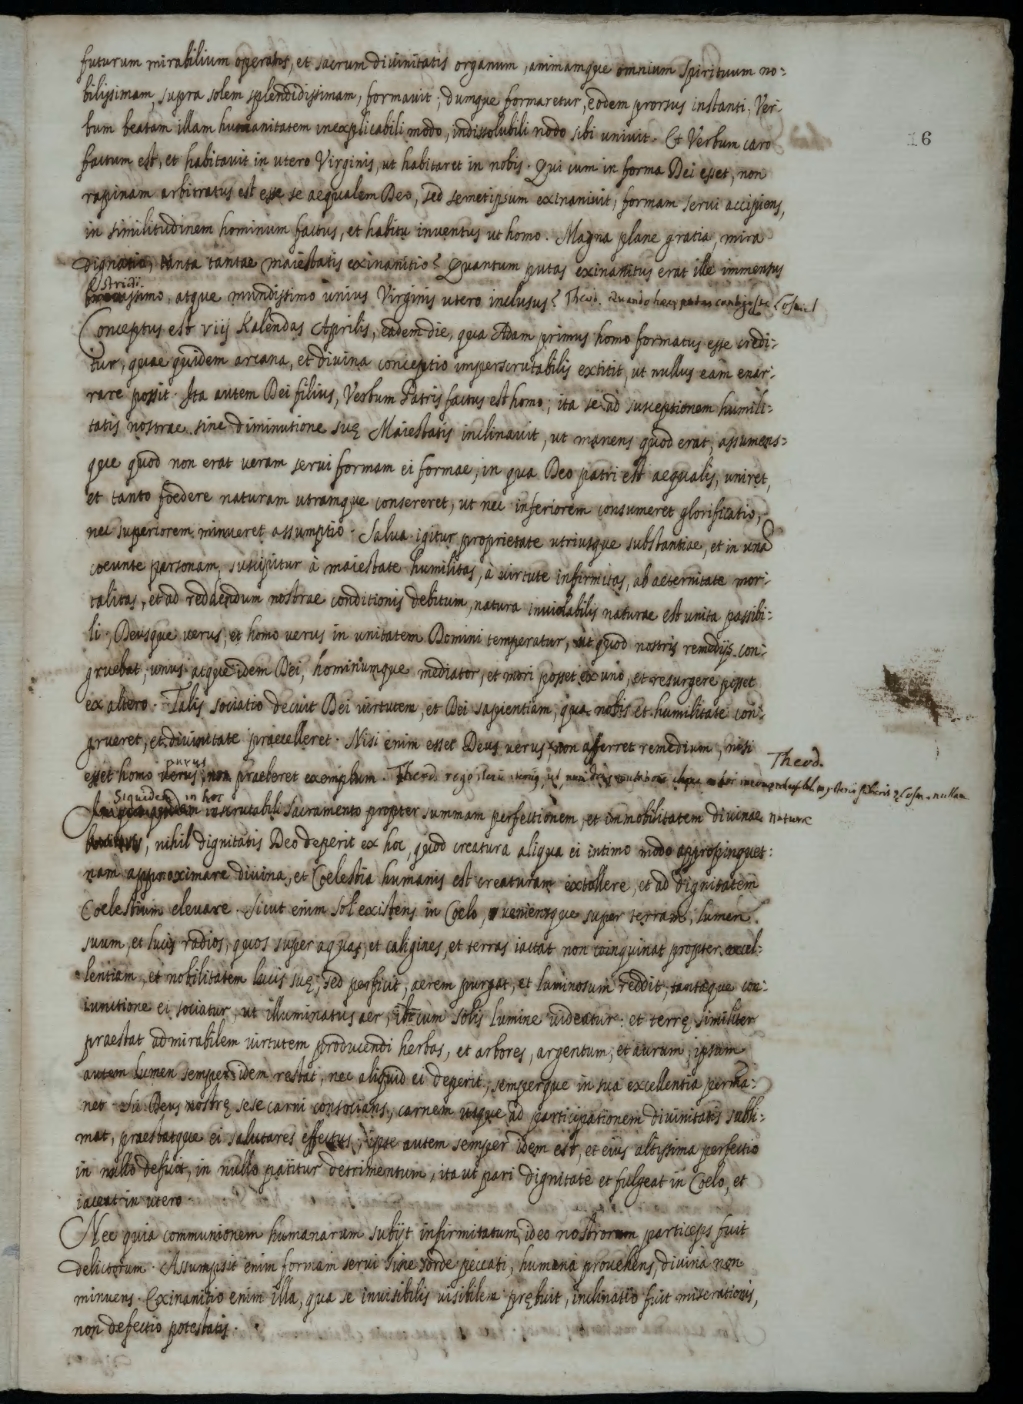 futurum mirabilium operatus, et sacrum divinitatis organum, animamque omnium spirituum no:
bilissimam, supra solem splendidissimam, formavit; dumque formaretur, eodem prorsus instanti, Ver:
bum beatam illam humanitatem inexplicabili modo, indissolubili nodo sibi univit. Et Verbum caro
factum est, et habitavit in utero Virginis, ut habitaret in nobis. Qui cum in forma Dei esset, non
rapinam arbitratus est esse se aequalem Deo, sed semetipsum exinanivit, formam servi accipiens,
in similitudinem hominum factus, et habitu inventus ut homo. Magna plane gratia, mira
dignatio, tanta tantae maiestatis exinanitio? Quantum putas exinanitus erat ille immensus
strictissimo, atque mundissimo unius Virginis utero inclusus? Theod. Quando haec
16
Conceptus est viij Kalendas Aprilis, eadem die, qua Adam primus homo formatus esse credi:
tur, quae quidem arcana, et divina conceptio imperscrutabilis extitit, ut nullus eam enar:
rare possit. Ita autem Dei filius, Verbum Patris factus est homo; ita se ad susceptionem humili:
tatis nostrae sine diminutione suę Maiestatis inclinavit, ut manens quod erat, assumens:
que quod non erat veram servi formam ei formae, in qua Deo patri est aequalis, uniret,
et tanto foedere naturam utramque consereret, ut nec inferiorem consumeret glorificatio,
nec superiorem minueret assumptio. Salva igitur proprietate utriusque substantiae, et in unã
coeunte personam, suscipitur à maiestate humilitas, à virtute infirmitas, ab aeternitate mor:
talitas, et ad reddendum nostrae conditionis debitum, natura inviolabilis naturae est unita passibi:
li; Deusque verus, et homo verus in unitatem Domini temperatur, ut quod nostris remedijs con:
gruebat, unus atque idem Dei, hominumque mediator, et mori posset ex uno, et resurgere posset
ex altero. Talis sociatio decuit Dei virtutem, et Dei sapientiam, qua nobis et humilitate con:
grueret, et divinitate praecelleret. Nisi enim esset Deus verus, non afferret remedium, nisi
esset homo purus, non praeberet exemplum. Theod.
Theod.
Siquidem in hoc inscrutabili Sacramento propter summam perfectionem, et immobilitatem divinae naturae
nihil dignitatis Deo deperit ex hoc, quod creatura aliqua ei intimo modo appropinquet:
nam approximare divina, et Coelestia humanis est creaturam extollere, et ad dignitatem
Coelestium elevare. Sicut enim Sol existens in Coelo, veniensque super terram, lumen
suum, et lucis radios, quos super aquas, et caligines, et terras iactat non coinquinat propter excel:
lentiam, et nobilitatem lucis suę, sed perficit, aerem purgat, et luminosum reddit, tantaque con:
iunctione ei sociatur, ut illuminatus aer, cum Solis lumine videatur: et terrę similiter
praestat admirabilem virtutem producendi herbas, et arbores, argentum, et aurum, ipsum
autem lumen semper idem restat, nec aliquid ei deperit, semperque in sua excellentia perma:
net. Sic Deus nostrę sese carni consocians, carnem usque ad participationem divinitatis subli:
mat, praestatque ei salutares effectus; ipse autem semper idem est, et eius altissima perfectio
in nullo deficit, in nullo patitur detrimentum, ita ut pari dignitate et fulgeat in Coelo, et
iaceat in utero.
Nec quia communionem humanarum subijt infirmitatum, ideo nostrorum particeps fuit
delictorum. Assumpsit enim formam servi sine sorde peccati, humana provehens, divina non
minuens. Exinanitio enim illa, qua se invisibilis visibilem prębuit, inclinatio fuit miserationis,
non defectio potestatis.